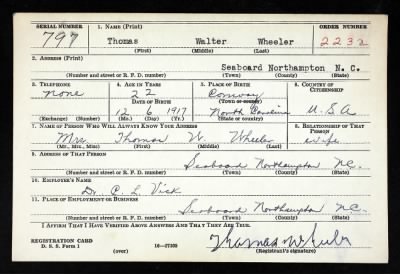 SERIAL NUMBER 1. NAME (Print) ORDER NUMBER
797 Thomas Walter Wheeler 2232
(First) (Middle) (Last)
2. ADDRESS (Print)
Seaboard Northampton N. C.
(Number and street or R. F. D. number) (Town) (County) (State)
3. TELEPHONE 4. AGE IN YEARS 5. PLACE OF BIRTH 6. COUNTRY OF CITIZENSHIP
None 22 Conway
DATE OF BIRTH (Town or county)
12 6 1917 North Carolina U.S.A
(Exchange) (Number) (Mo.) (Day) (Yr.) (State or country)
7. NAME OF PERSON WHO WILL ALWAYS KNOW YOUR ADDRESS 8. RELATIONSHIP OF THAT PERSON
Mrs Thomas W. Wheeler wife
(Mr., Mrs., Miss) (First) (Middle) (Last)
9. ADDRESS OF THAT PERSON
Seaboard Northampton N.C.
(Number and street or R. F. D. number) (Town) (County) (State)
10. EMPLOYER'S NAME
Dr. C. L. Vick
11. PLACE OF EMPLOYMENT OR BUSINESS
Seaboard Northampton N.C.
(Number and street or R. F. D. number) (Town) (County) (State)
I AFFIRM THAT I HAVE VERIFIED ABOVE ANSWERS AND THAT THEY ARE TRUE.
REGISTRATION CARD
D. S. S. Form 1 16—17105 Thomas Wheeler
(over) (Registrant's signature)